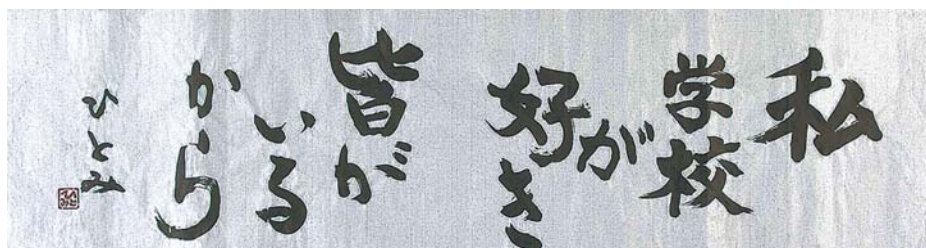 私
学校
が
好き
皆が
いる
から
ひとみ